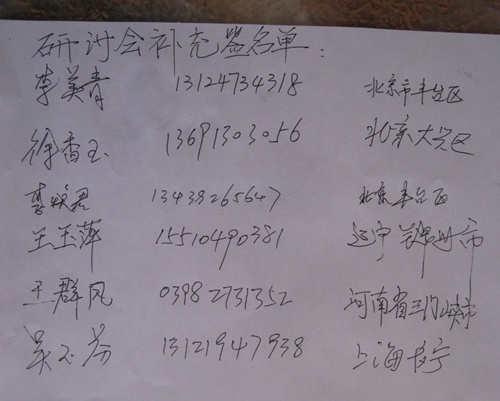 研讨会补充签名单:
李美青 13124734318 北京市丰台区
徐香玉 13691303056 北京大兴区
李焕君 13439265647 北京丰台区
王玉萍 15510490381 辽宁锦州市
王群凤 03982731352 河南省三门峡市
吴玉芬 13121947938 上海长宁